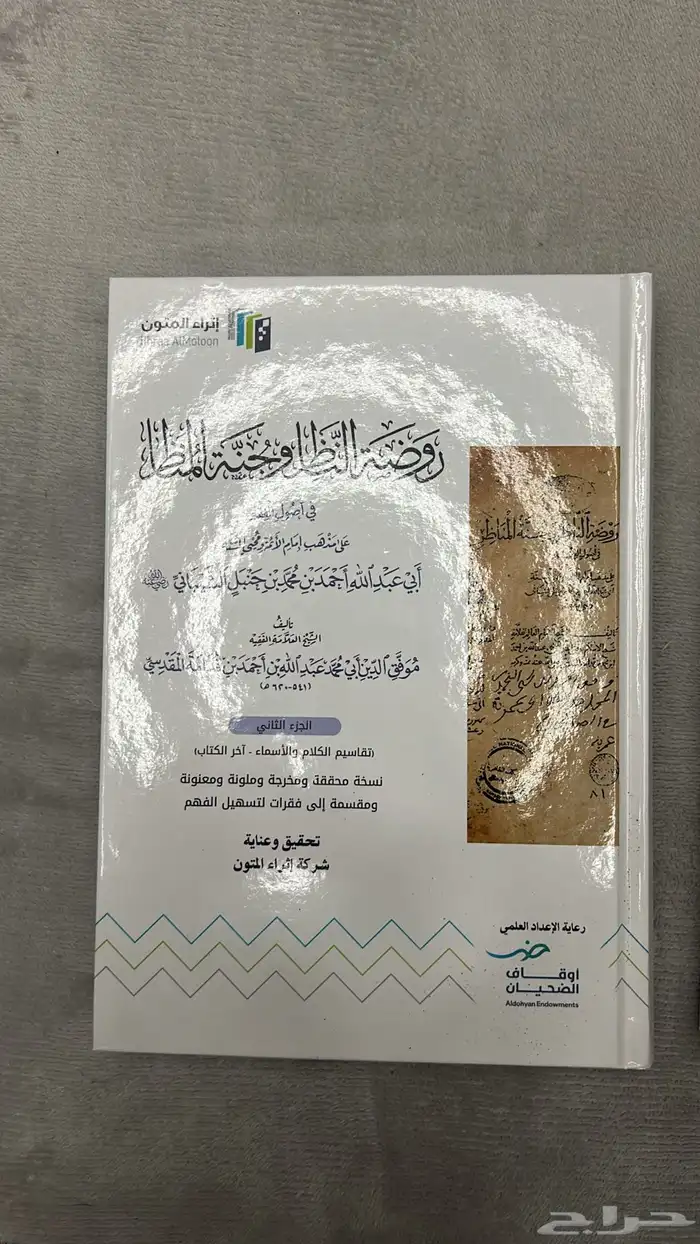 إثراء المتون
Ithraa AlMotoon
روضة الناظر وجنة المناظر
في أصول الفقه
على مذهب إمام الأئمة ومحيي السنة
أبي عبد الله أحمد بن محمد بن حنبل الشيباني
تأليف
الشيخ العلامة الفقيه
موفق الدين أبي محمد عبد الله بن أحمد بن قدامة المقدسي
(٥٤١-٦٢٠ هـ)
الجزء الثاني
(تقاسيم الكلام والأسماء - آخر الكتاب)
نسخة محققة ومخرجة وملونة ومعنونة
ومقسمة إلى فقرات لتسهيل الفهم
تحقيق وعناية
شركة إثراء المتون
رعاية الإعداد العلمي
أوقاف
الضحيان
Aldohyan Endowments
حراج